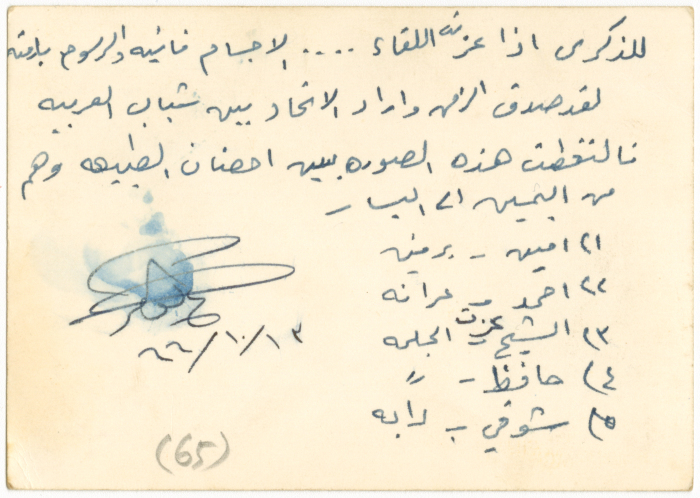 للذكرى اذا عز اللقاء .... الاجسام فانيه والرسوم باقيه
لقد صدق الزمن واراد الاتحاد بين شباب العربيه
فالتقطت هذه الصوره بين احضان الطبيعه وهم
من اليمين الى اليسار
١) امين - برقين
٢) احمد - عرانه
٣) الشيخ عزت - الجلمه
٤) حافظ - "
٥) شوقي - دابه
٦٦/١٠/١٣
(65)